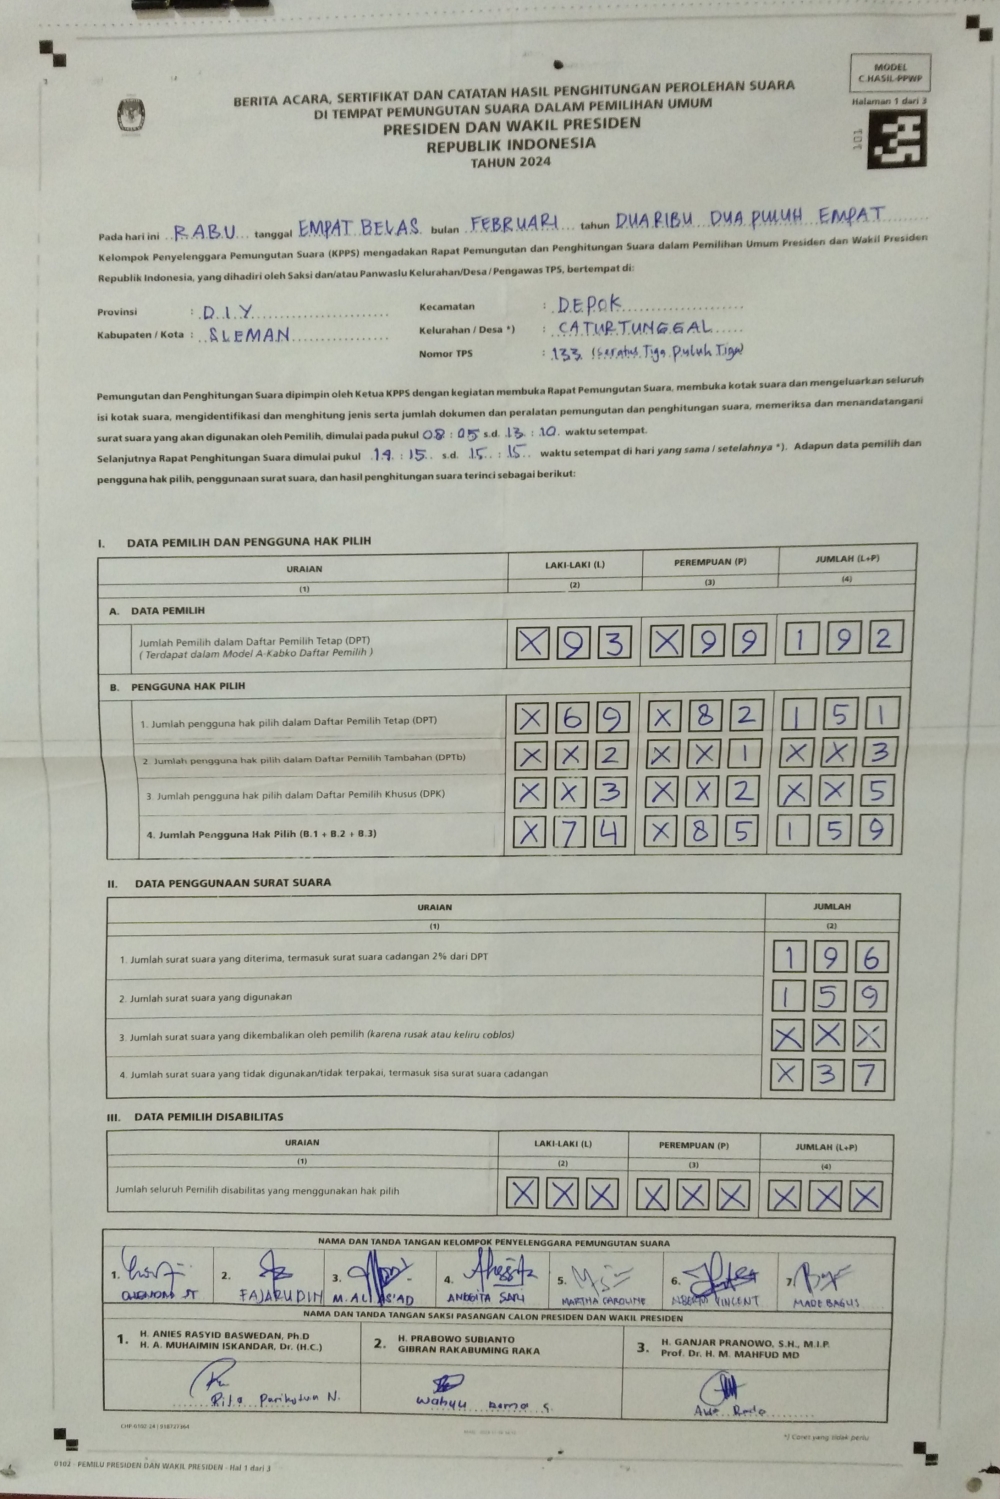 MODEL
C.HASIL-PPWP
Halaman 1 dari 3
101
BERITA ACARA, SERTIFIKAT DAN CATATAN HASIL PENGHITUNGAN PEROLEHAN SUARA
DI TEMPAT PEMUNGUTAN SUARA DALAM PEMILIHAN UMUM
PRESIDEN DAN WAKIL PRESIDEN
REPUBLIK INDONESIA
TAHUN 2024
Pada hari ini RABU tanggal EMPAT BELAS bulan FEBRUARI tahun DUA RIBU DUA PULUH EMPAT
Kelompok Penyelenggara Pemungutan Suara (KPPS) mengadakan Rapat Pemungutan dan Penghitungan Suara dalam Pemilihan Umum Presiden dan Wakil Presiden
Republik Indonesia, yang dihadiri oleh Saksi dan/atau Panwaslu Kelurahan/Desa / Pengawas TPS, bertempat di:
Provinsi : D.I.Y Kecamatan : DEPOK
Kabupaten / Kota : SLEMAN Kelurahan / Desa *) : CATURTUNGGAL
Nomor TPS : 133 (Seratus Tiga Puluh Tiga)
Pemungutan dan Penghitungan Suara dipimpin oleh Ketua KPPS dengan kegiatan membuka Rapat Pemungutan Suara, membuka kotak suara dan mengeluarkan seluruh
isi kotak suara, mengidentifikasi dan menghitung jenis serta jumlah dokumen dan peralatan pemungutan dan penghitungan suara, memeriksa dan menandatangani
surat suara yang akan digunakan oleh Pemilih, dimulai pada pukul 08 : 05 s.d. 13 : 10. waktu setempat.
Selanjutnya Rapat Penghitungan Suara dimulai pukul 14 : 15 s.d. 15 : 15 waktu setempat di hari yang sama / setelahnya *). Adapun data pemilih dan
pengguna hak pilih, penggunaan surat suara, dan hasil penghitungan suara terinci sebagai berikut:
I. DATA PEMILIH DAN PENGGUNA HAK PILIH
URAIAN LAKI-LAKI (L) PEREMPUAN (P) JUMLAH (L+P)
(1) (2) (3) (4)
A. DATA PEMILIH
Jumlah Pemilih dalam Daftar Pemilih Tetap (DPT) X 9 3 X 9 9 1 9 2
( Terdapat dalam Model A-Kabko Daftar Pemilih )
B. PENGGUNA HAK PILIH
1. Jumlah pengguna hak pilih dalam Daftar Pemilih Tetap (DPT) X 6 9 X 8 2 1 5 1
2. Jumlah pengguna hak pilih dalam Daftar Pemilih Tambahan (DPTb) X X 2 X X 1 X X 3
3. Jumlah pengguna hak pilih dalam Daftar Pemilih Khusus (DPK) X X 3 X X 2 X X 5
4. Jumlah Pengguna Hak Pilih (B.1 + B.2 + B.3) X 7 4 X 8 5 1 5 9
II. DATA PENGGUNAAN SURAT SUARA
URAIAN JUMLAH
(1) (2)
1. Jumlah surat suara yang diterima, termasuk surat suara cadangan 2% dari DPT 1 9 6
2. Jumlah surat suara yang digunakan 1 5 9
3. Jumlah surat suara yang dikembalikan oleh pemilih (karena rusak atau keliru coblos) X X X
4. Jumlah surat suara yang tidak digunakan/tidak terpakai, termasuk sisa surat suara cadangan X 3 7
III. DATA PEMILIH DISABILITAS
URAIAN LAKI-LAKI (L) PEREMPUAN (P) JUMLAH (L+P)
(1) (2) (3) (4)
Jumlah seluruh Pemilih disabilitas yang menggunakan hak pilih X X X X X X X X X
NAMA DAN TANDA TANGAN KELOMPOK PENYELENGGARA PEMUNGUTAN SUARA
1. 2. 3. 4. 5. 6. 7.
FAJARUDIN M. ALI AS'AD ANGGITA SARI MARTHA CAROLINE VINCENT MADE BAGUS
NAMA DAN TANDA TANGAN SAKSI PASANGAN CALON PRESIDEN DAN WAKIL PRESIDEN
1. H. ANIES RASYID BASWEDAN, Ph.D
H. A. MUHAIMIN ISKANDAR, Dr. (H.C.)
2. H. PRABOWO SUBIANTO
GIBRAN RAKABUMING RAKA
3. H. GANJAR PRANOWO, S.H., M.I.P.
Prof. Dr. H. M. MAHFUD MD
N. Wahyu S.
*) Coret yang tidak perlu
0102 - PEMILU PRESIDEN DAN WAKIL PRESIDEN - Hal 1 dari 3